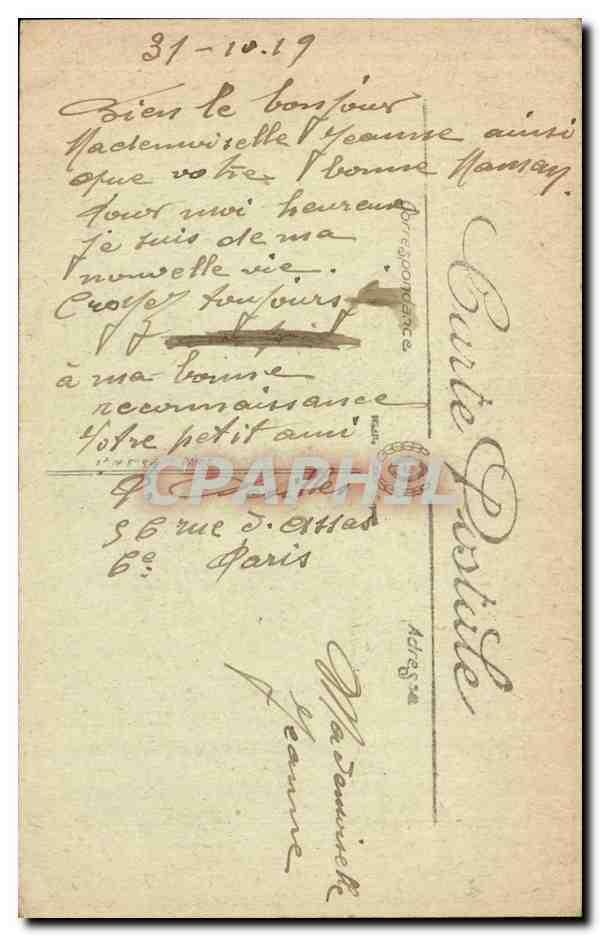 31-10.19
Bien le bonjour
Mademoiselle Jeanne ainsi
que votre bonne Maman.
Pour moi heureux
je suis de ma
nouvelle vie.
Croyez toujours
à ma bonne
reconnaissance
Votre petit ami
56 rue d'Assas
6e. Paris
Mademoiselle
Jeanne
Carte Postale
Correspondance
Adresse
CPAPHIL